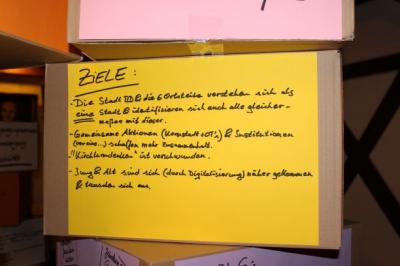 ZIELE:
- Die Stadt & die 6 Ortsteile verstehen sich als
eine Stadt & identifizieren sich auch alle gleicher-
maßen mit dieser.
- Gemeinsame Aktionen (Kernstadt + OT's) & Institutionen
(Vereine...) schaffen mehr Zusammenhalt.
- "Kirchturmdenken" ist verschwunden.
- Jung & Alt sind sich (durch Digitalisierung) näher gekommen
& tauschen sich aus.